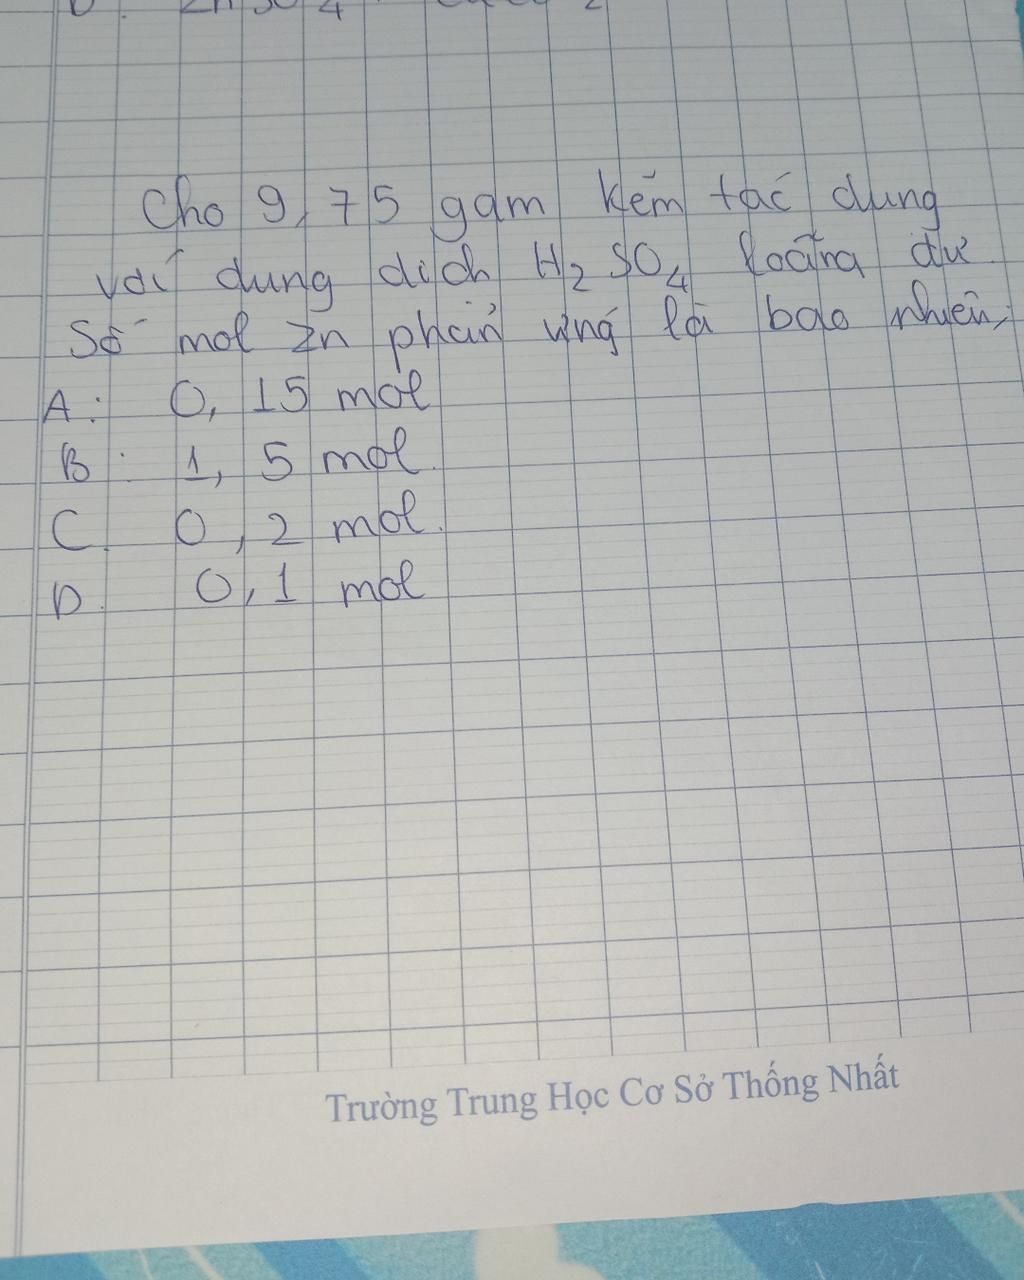 Cho 9,75 gam kẽm tác dụng
với dung dịch H2SO4 loãng dư
Số mol Zn phản ứng là bao nhiêu,
A: 0,15 mol
B: 1,5 mol.
C. 0,2 mol.
D. 0,1 mol
Trường Trung Học Cơ Sở Thống Nhất